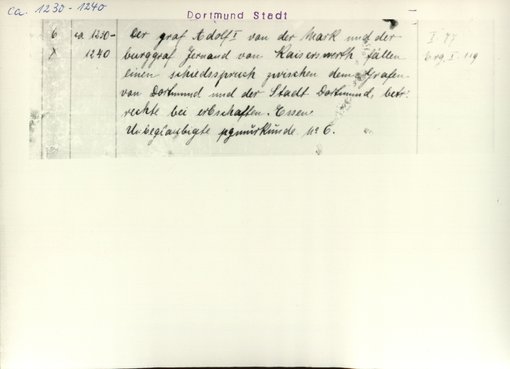 ca. 1230 - 1240
Dortmund Stadt
6 ca 1230- Der graf Adolf I van der Mark und der I 77
X 1240 burggraf Gernand van Kaiserswerth fällen Erg. I. 119
einen schiedespruch zwischen dem Grafen
van Dortmund und der Stadt Dortmund, betr:
rechte bei erbschaften. Essen.
Unbeglaubigte pgmurkunde no 6.